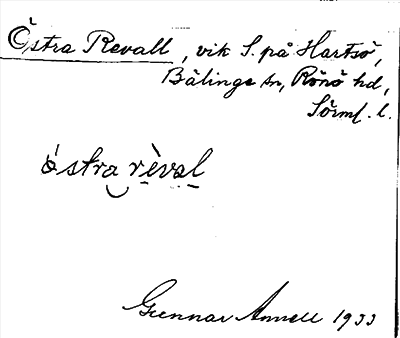 Östra Revall, vik S. på Hartsö,
Bälinge sn, Rönö hd,
Sörml. l.
östra rèval
Gunnar Annell 1933